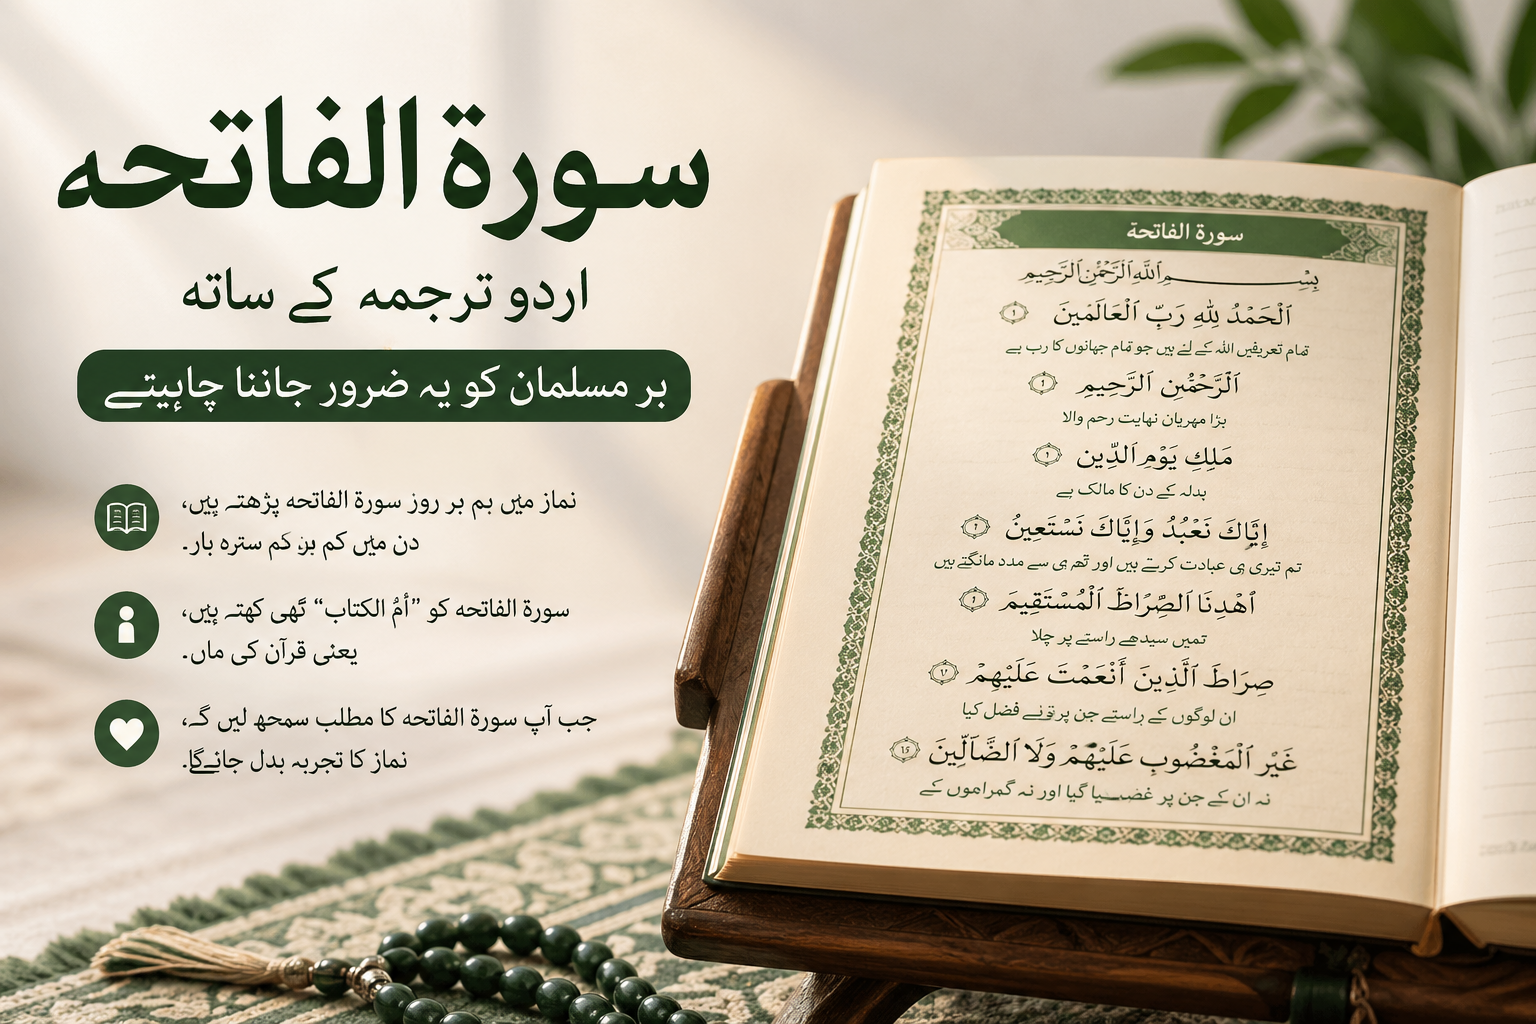 سورة الفاتحه
اردو ترجمه کے ساته
بر مسلمان کو یہ ضرور جاننا چاہیتے
نماز میں بم بر روز سورة الفاتحه پڑهتے ہیں،
دن میں کم بن کم ستره بار۔
سورة الفاتحه کو ”أمُ الكتاب“ بهی کهتے ہیں،
یعنی قرآن کی ماں۔
جب آپ سورة الفاتحه کا مطلب سمجھ لیں گے،
نماز کا تجربہ بدل جائےگا۔
سورة الفاتحة
بِسْمِ اللَّهِ الرَّحْمَٰنِ الرَّحِيمِ
اَلْحَمْدُ لِلّٰهِ رَبِّ الْعَالَمْينَ ١
تمام تعریفیں الله کے لئے ہیں جو تمام جهانوں کا رب ہے
اَلرَّحْمٰنِ الرَّحِيمِ
بڑا مهربان نهایت رحم والا
مَلِكِ يَوْمِ الدِّين
بدله کے دن کا مالک ہے
إِيَّاكَ نَعْبُدُ وَإِيَّاكَ نَسْتَعِينُ
تم تیری ہی عبادت کرتے ہیں اور ہی سے مدد مانگتے ہیں
اَهْدِنَا الصِّرَاطَ الْمُسْتَقِيمَ
تمیں سیدهے راستے پر چلا
صِرَاطَ الَّذِينَ أَنْعَمْتَ عَلَيْهِمْ ٧
ان لوگوں کے راستے جن پر تونے فضل کیا
غَيْرِ الْمَغْضُوبِ عَلَيْهِمْ وَلَا الضَّالِّينَ
نہ ان کے جن پر گیا اور نہ گمراموں کے